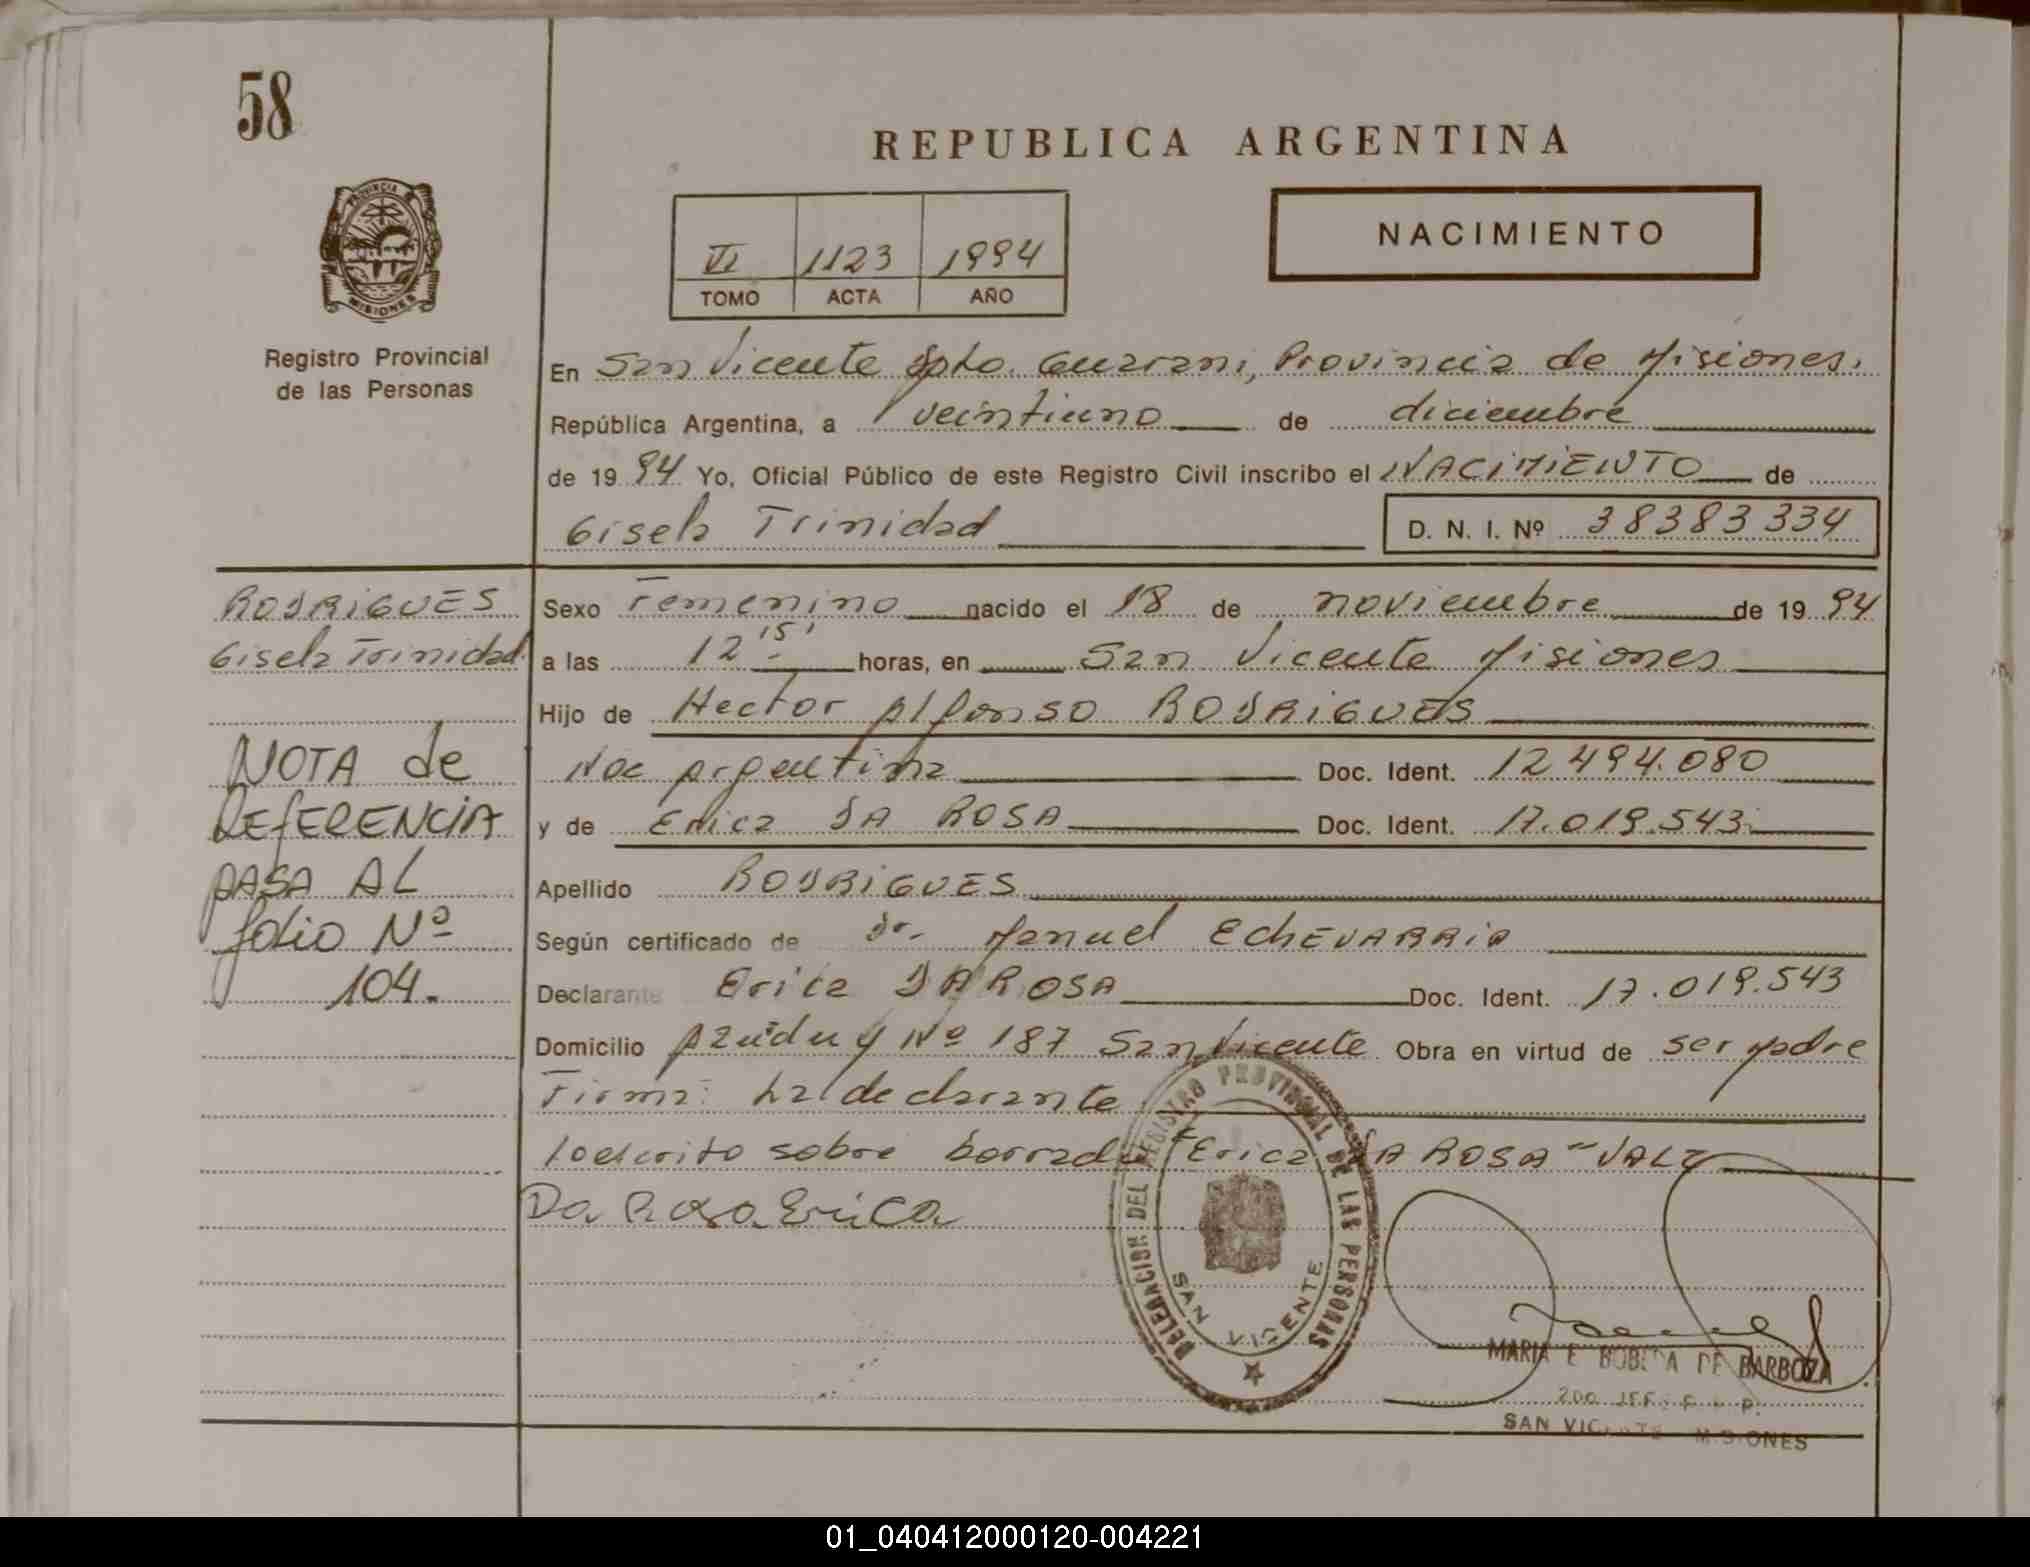 58
REPUBLICA ARGENTINA
PROVINCIA
MISIONES
VI 1123 1994
TOMO ACTA AÑO
NACIMIENTO
Registro Provincial
de las Personas
En San Vicente Dpto. Guarani, Provincia de Misiones.
República Argentina, a veintiuno de diciembre
de 1994 Yo, Oficial Público de este Registro Civil inscribo el NACIMIENTO de
Gisela Trinidad D. N. I. Nº 38383334
RODRIGUES
Gisela Trinidad.
Sexo Femenino nacido el 18 de noviembre de 1994
a las 12 15' horas, en San Vicente Misiones
Hijo de Hector Alfonso RODRIGUES
Nac Argentina Doc. Ident. 12.494.080
y de Erica DA ROSA Doc. Ident. 17.019.543
Apellido RODRIGUES
Según certificado de Dr. Manuel ECHEVARRIA
Declarante Erica DA ROSA Doc. Ident. 17.019.543
Domicilio Azurduy Nº 187 San Vicente Obra en virtud de ser Madre
Firma: La declarante
lo escrito sobre borrado "Erica DA ROSA" VALE
Da Rosa Erica
NOTA de
REFERENCIA
PASA AL
folio Nº
104.
DELEGACION DEL REGISTRO PROVINCIAL DE LAS PERSONAS
SAN VICENTE
MARIA E BOBEDA DE BARBOZA
SAN VICENTE MISIONES
01_040412000120-004221